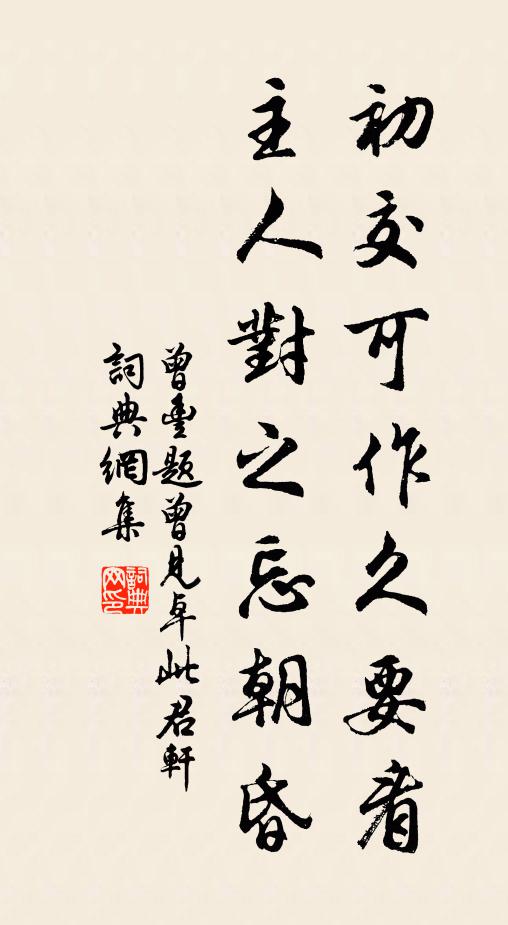 初交可作久要看
主人對之忘朝昏
曾豐題曾見卓此君軒
詞典網集
詞典網印